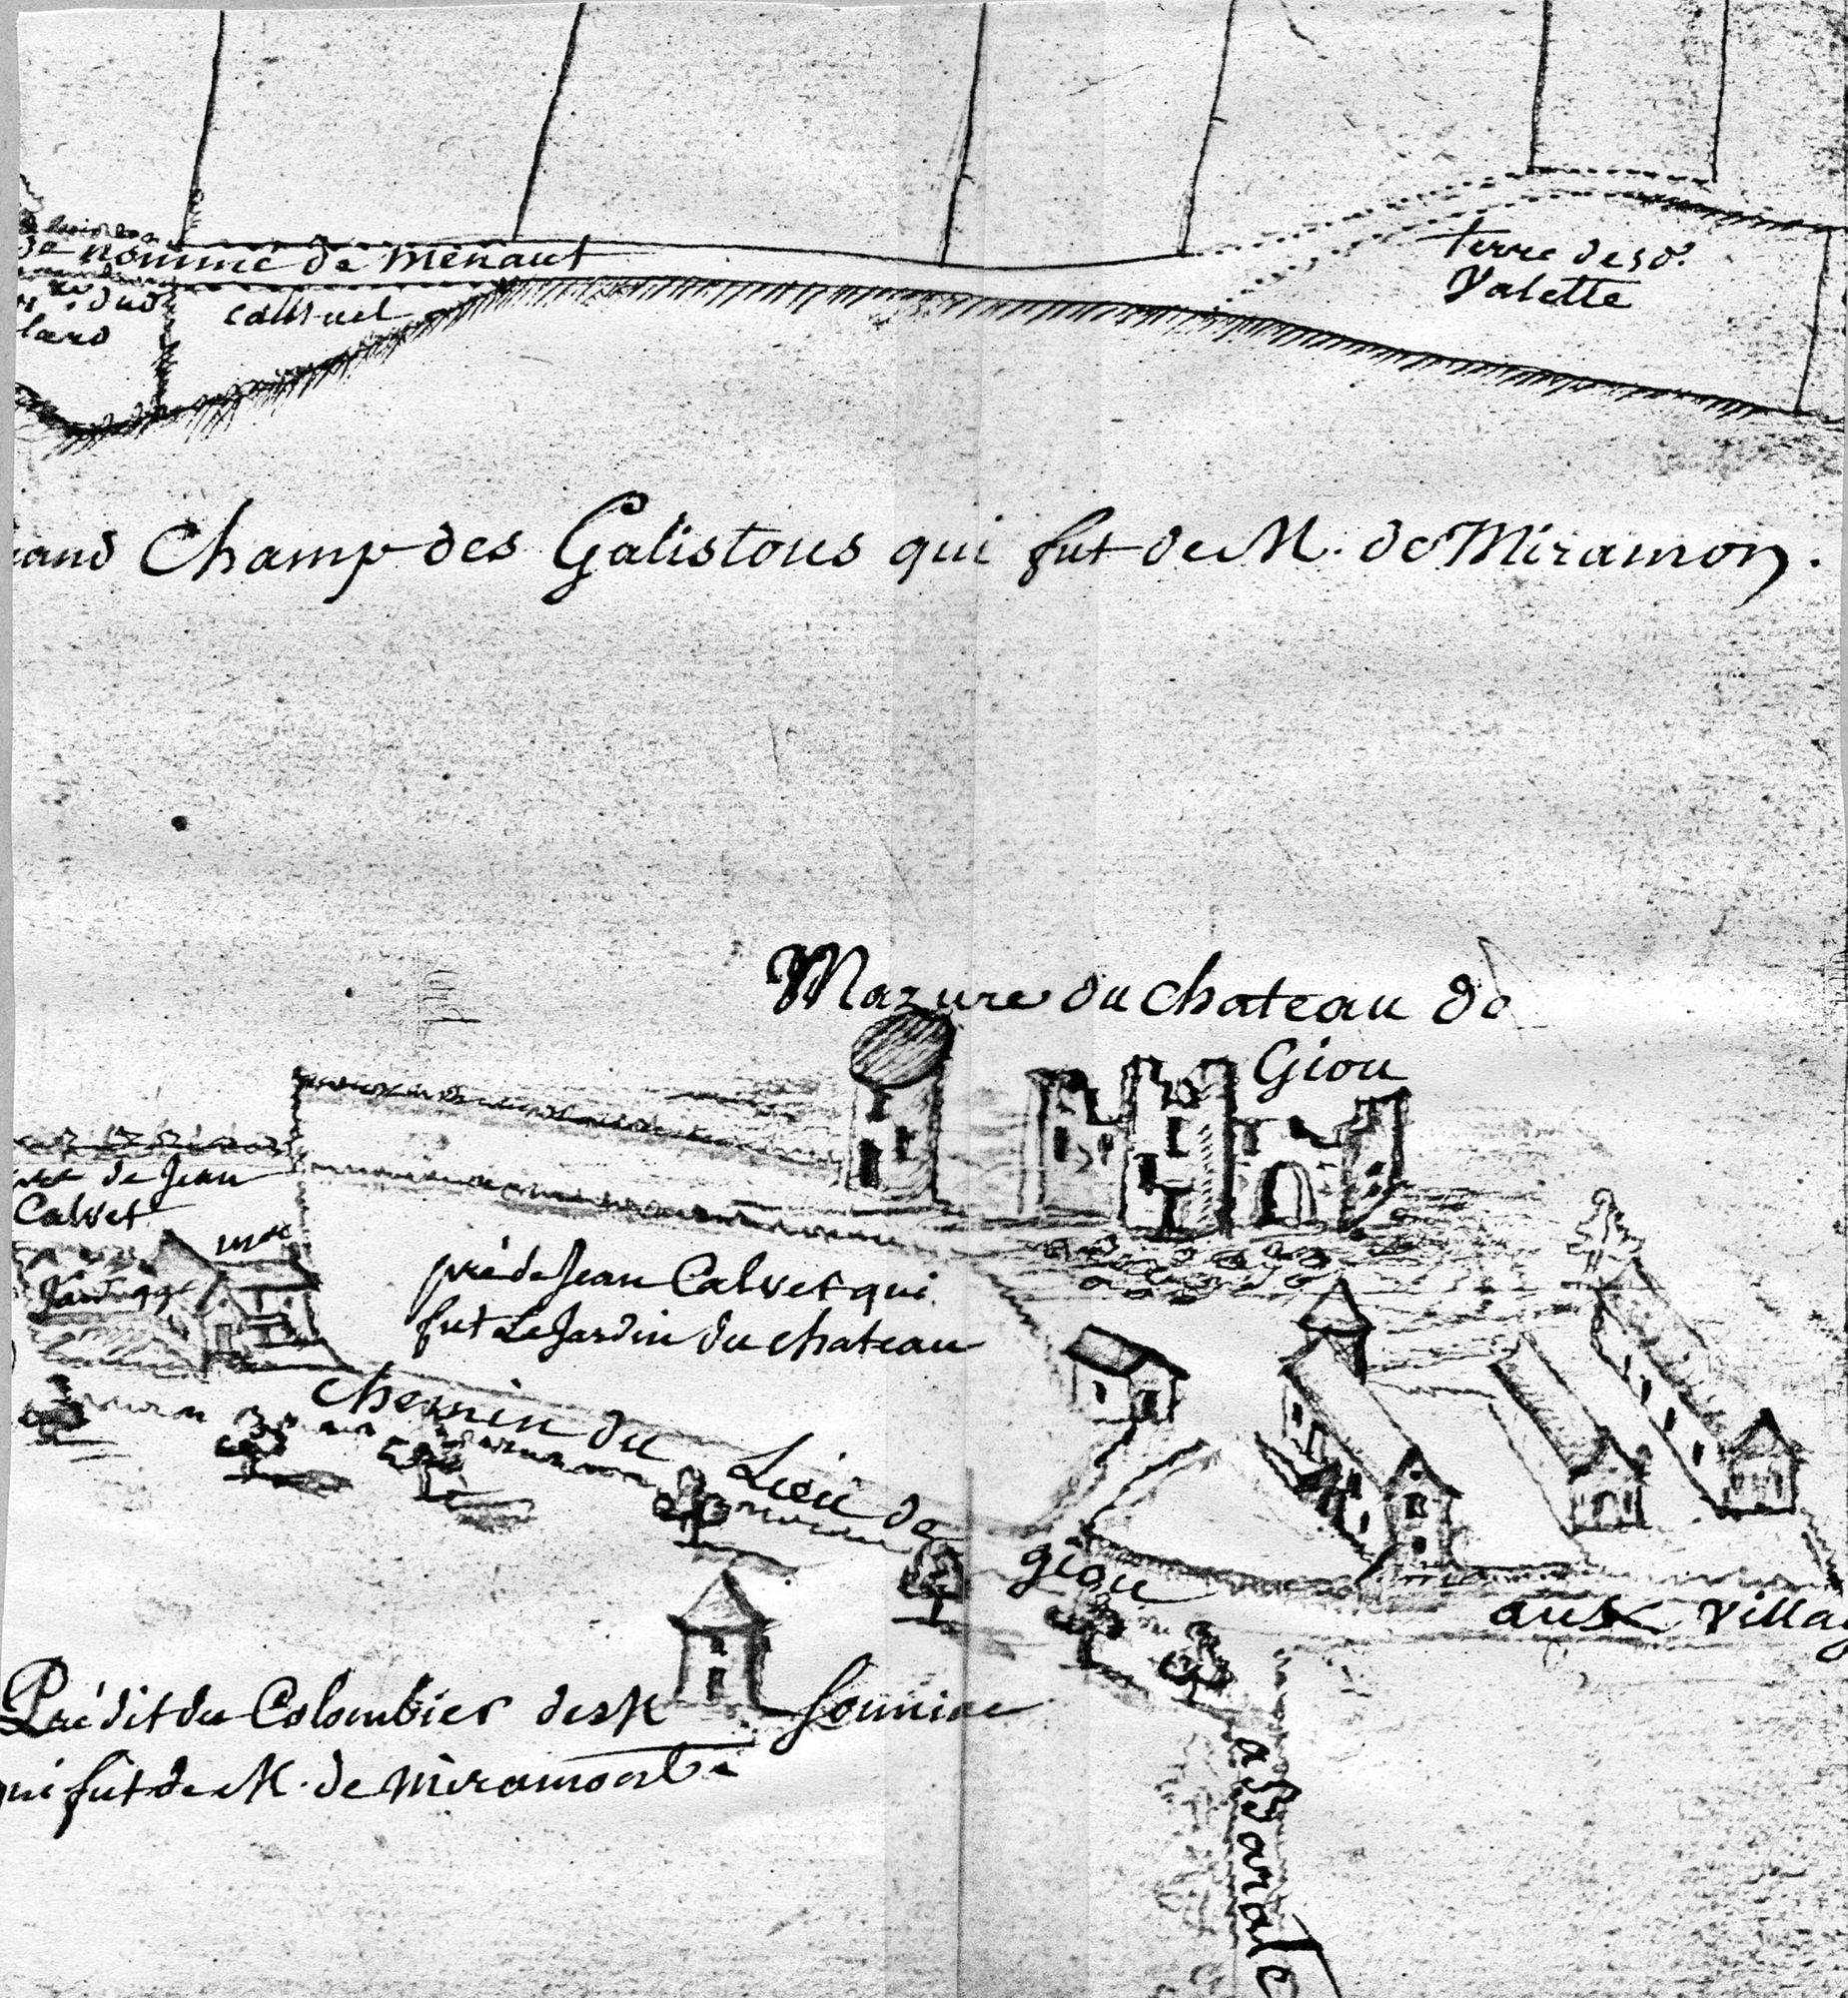 nommé de Menaut
lard
terre de sr.
Valette
Champ des Galistous qui fut de M. de Miramon.
Mazure du chateau de
Giou
de Jean
Calvet
pré de Jean Calvet qui
fut Le Jardin du chateau
chemin du Lieu de
giou
aux villag
Pré dit du Colombier de M
qui fut de M. de Miramont